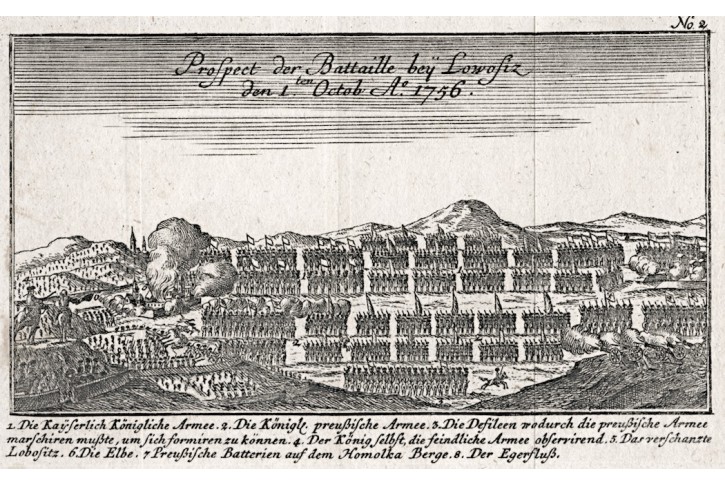 No 2
Prospect der Battaille beÿ Lowosiz
den 1ten Octob Ao. 1756.
1. Die Kaÿserlich Königliche Armee. 2. Die Königl. preußische Armee. 3. Die Defileen wodurch die preußische Armee
marschiren mußte, um sich formiren zu können. 4. Der König selbst, die feindliche Armee observirend. 5. Das verschanzte
Lobositz. 6. Die Elbe. 7 Preußische Batterien auf dem Homolka Berge. 8. Der Egerfluß.